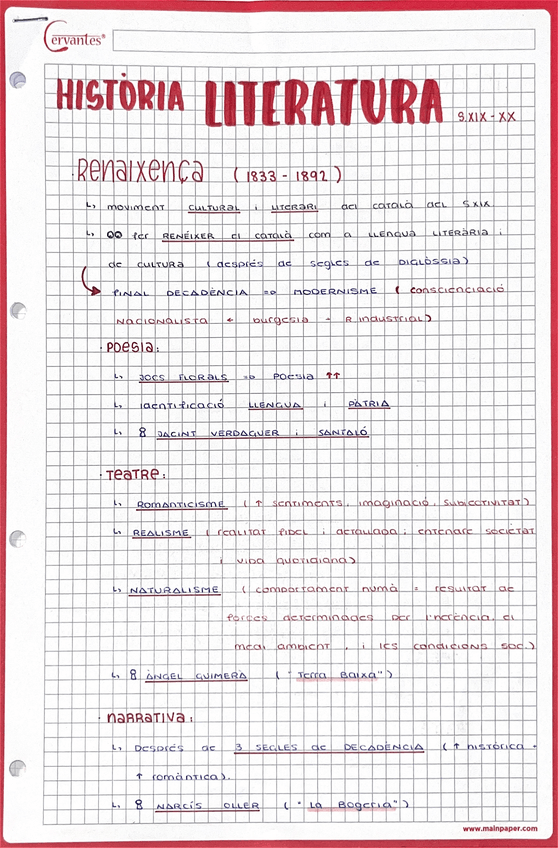 Cervantes®
HISTÒRIA LITERATURA S.XIX - XX
· Renaixença (1833 - 1892)
↳ moviment CULTURAL i LITERARI del català del S.XIX
↳ fer RENÉIXER el català com a LLENGUA LITERÀRIA i
de CULTURA (després de segles de DIGLÒSSIA)
FINAL DECADÈNCIA => MODERNISME (conscienciació
nacionalista ← burgesia - R.industrial)
· Poesia:
↳ JOCS FLORALS => Poesia ↑↑
↳ identificació LLENGUA i PÀTRIA
↳ JACINT VERDAGUER i SANTALÓ
· Teatre:
↳ ROMANTICISME (↑ sentiments, imaginació, subjectivitat)
↳ REALISME (realitat fidel i detallada; entendre societat
i vida quotidiana)
↳ NATURALISME (comportament humà = resultat de
forces determinades per l'herència, el
medi ambient, i les condicions soc.)
↳ ÀNGEL GUIMERÀ ("Terra Baixa")
· Narrativa:
↳ Després de 3 SEGLES de DECADÈNCIA (↑ històrica +
↑ romàntica).
↳ NARCÍS OLLER ("La Bogeria")
www.mainpaper.com